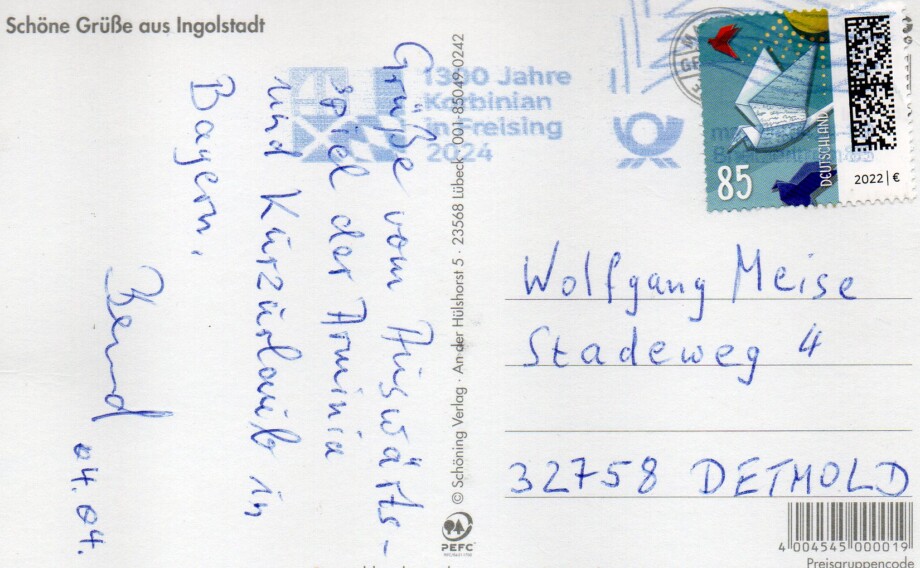 Schöne Grüße aus Ingolstadt
Grüße vom Auswärts-
spiel der Arminia
und Kurzurlaub in
Bayern.
Bernd 04.04.
© Schöning Verlag · An der Hülshorst 5 · 23568 Lübeck · 001-85049-0242
PEFC
1300 Jahre
Korbinian
in Freising
2024
85
DEUTSCHLAND
2022 | €
Wolfgang Meise
Stadeweg 4
32758 DETMOLD
4 004545 000019
Preisgruppencode